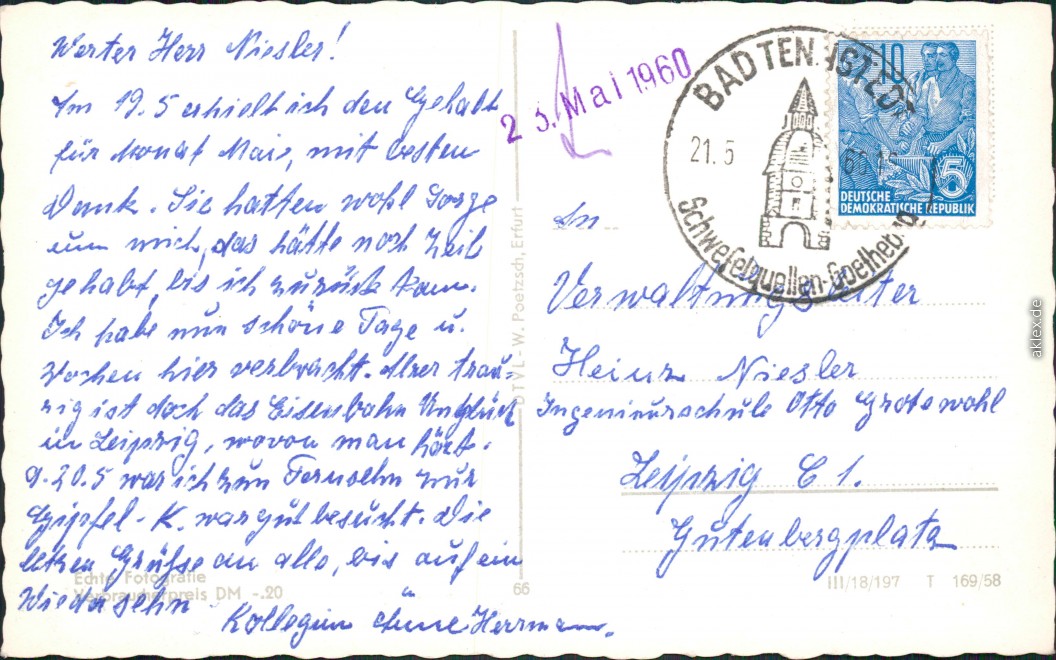 Werter Herr Niesler!
Am 19.5 erhielt ich den Gehalt
für Monat Mai, mit besten
Dank. Sie hatten wohl Sorge
um mich, das hätte noch Zeit
gehabt, bis ich zurück kam.
Ich habe nun schöne Tage u.
Wochen hier verbracht. Aber trau-
rig ist doch das Eisenbahn Unglück
in Leipzig, wovon man hört.
20.5 war ich zum Fernsehn zur
Gipfel-K. war gut besucht. Die
letzen Grüße an alle, bis auf ein
Wiedersehn
Kollegin Herrmann.
Echte Fotografie
Verbraucherpreis DM -.20
DTVL - W. Poetzsch, Erfurt
66
23. Mai 1960
BAD TENNSTEDT
21.5
Schwefelquellen-Goethebad
10
5
DEUTSCHE
DEMOKRATISCHE REPUBLIK
An
Verwaltungsleiter
Heinz Niesler
Ingenieurschule Otto Grotewohl
Leipzig C 1.
Gutenbergplatz
III/18/197 T 169/58
aklex.de